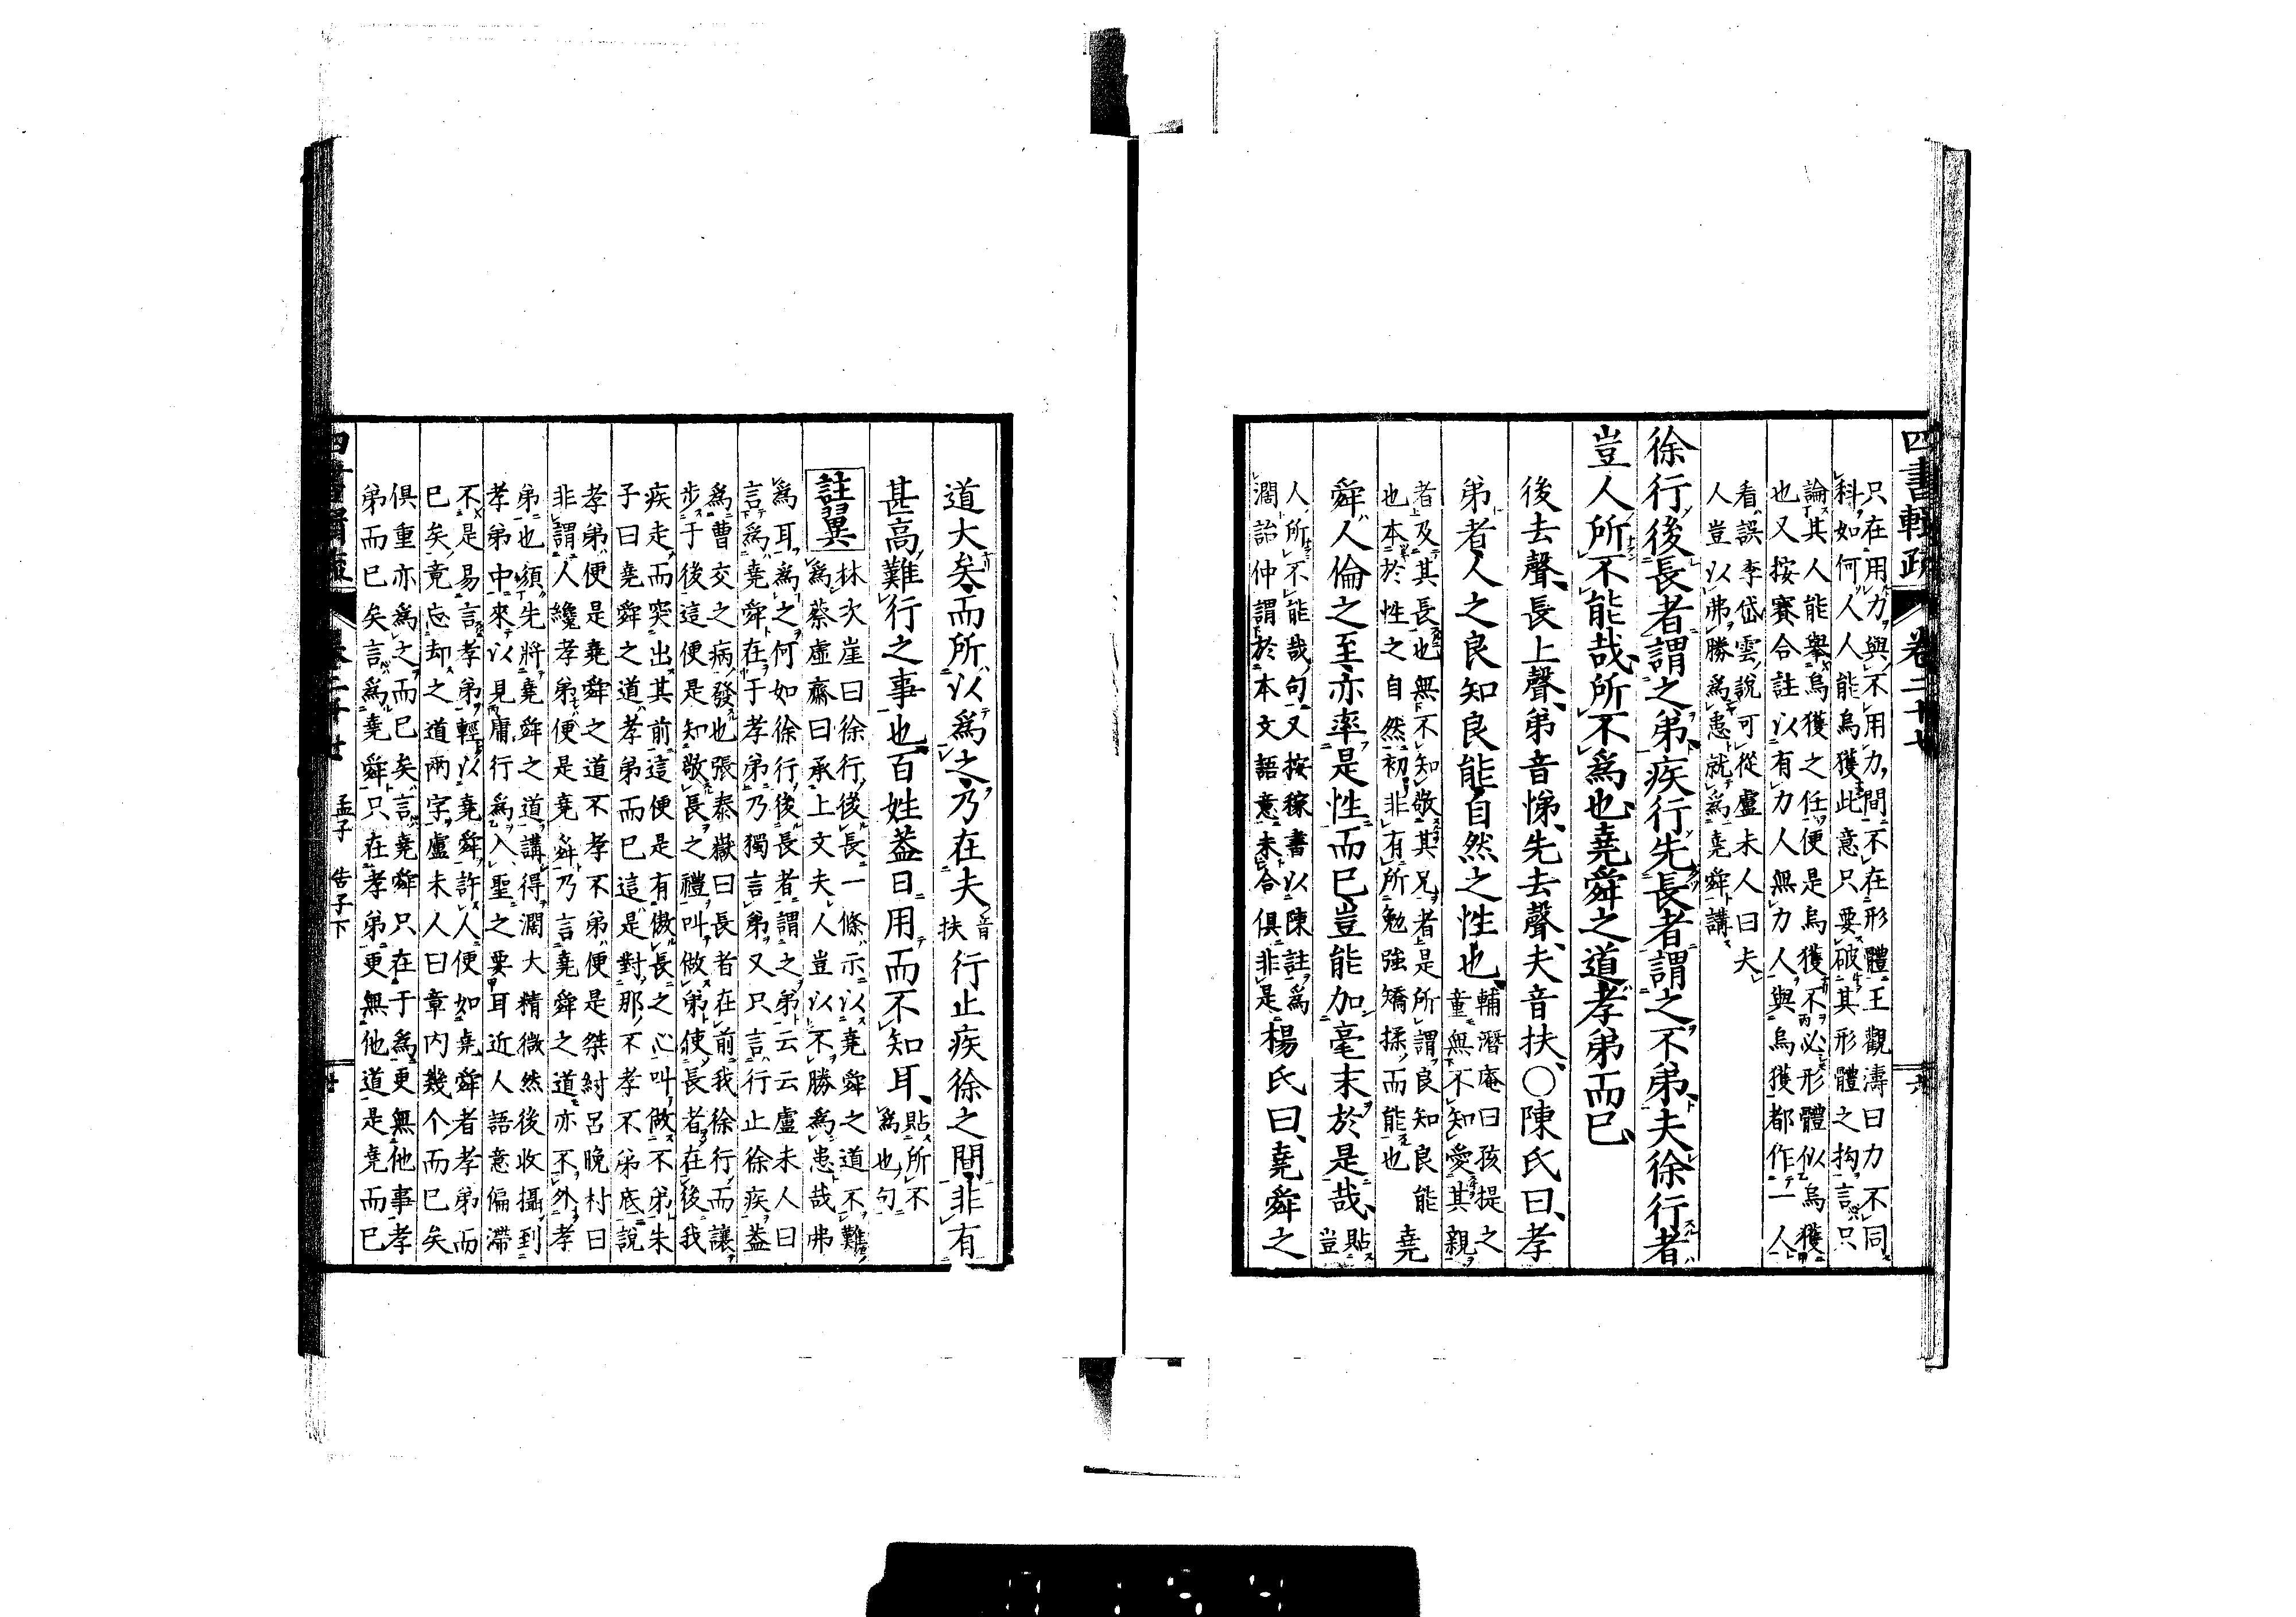 四書輯疏 卷二十七
只在用力與不用力間不在形體王觀濤曰力不同
科如何人人能烏獲此意只要破其形體之拘言只
論其人能舉烏獲之任便是烏獲不必形體似烏獲
也又按賽合註以有力人無力人與烏獲都作一人
看誤李岱雲說可從盧未人曰夫
人豈以弗勝為患就為堯舜講
徐行後長者謂之弟疾行先長者謂之不弟夫徐行者
豈人所不能哉所不為也堯舜之道孝弟而已
後去聲長上聲弟音悌先去聲夫音扶○陳氏曰孝
弟者人之良知良能自然之性也
輔潛庵曰孩提之
童無不知愛其親
者及其長也無不知敬其兄者是所謂良知良能
也本於性之自然初非有所勉強矯揉而能也
堯
舜人倫之至亦率是性而已豈能加毫末於是哉
貼
豈
人所不能哉句又按稼書以陳註為
濶詒仲謂於本文語意未合俱非是
楊氏曰堯舜之
道大矣而所以為之乃在夫
音
扶
行止疾徐之間非有
甚高難行之事也百姓蓋日用而不知耳
貼所不
為也句
註翼
林次崖曰徐行後長一條示以堯舜之道不難
為蔡虛齋曰承上文夫人豈以不勝為患哉弗
為耳為之何如徐行後長者謂之弟云云盧未人曰
言為堯舜在于孝弟乃獨言弟又只言行止徐疾蓋
為曹交之病發也張泰嶽曰長者在前我徐行而讓
步于後這便是知敬長之禮叫做弟使長者在後我
疾走而突出其前這便是有傲長之心叫做不弟朱
子曰堯舜之道孝弟而已這是對那不孝不弟底說
孝弟便是堯舜之道不孝不弟便是桀紂呂晚村曰
非謂人纔孝弟便是堯舜乃言堯舜之道亦不外孝
弟也須先將堯舜之道講得濶大精微然後收攝到
孝弟中來以見庸行為入聖之要耳近人語意偏滯
不是易言孝弟輕以堯舜許人便如堯舜者孝弟而
已矣竟忘却之道兩字盧未人曰章內幾个而已矣
俱重亦為之而已矣言堯舜只在于為更無他事孝
弟而已矣言為堯舜只在孝弟更無他道是堯而已
孟子 告子下